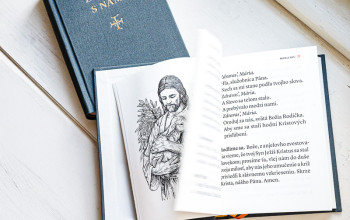 S NAMI
Zdravas', Mária.
služobnica Pána.
sa mi stane podľa tvojho slova.
Zdravas', Mária.
A Slovo sa telom stalo.
A prebývalo medzi nami.
Zdravas', Mária.
Oroduj za nás, svätá Božia Rodička.
Aby sme sa stali hodní Kristových
prisľúbení.
Modlime sa. Bože, z anjelovho zvestova-
nia vieme, že tvoj Syn Ježiš Kristus sa stal
človekom; prosíme ťa, vlej nám do duše
svoju milosť, aby nás jeho umučenie a kríž
priviedli k slávnemu vzkrieseniu. Skrze
Krista, nášho Pána. Amen.